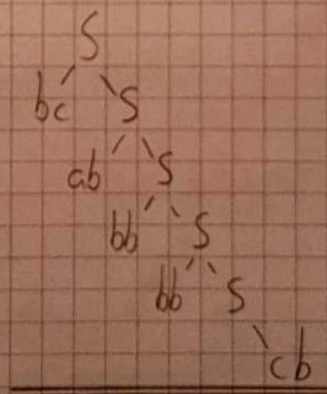 S
bc S
ab S
bb S
bb S
cb